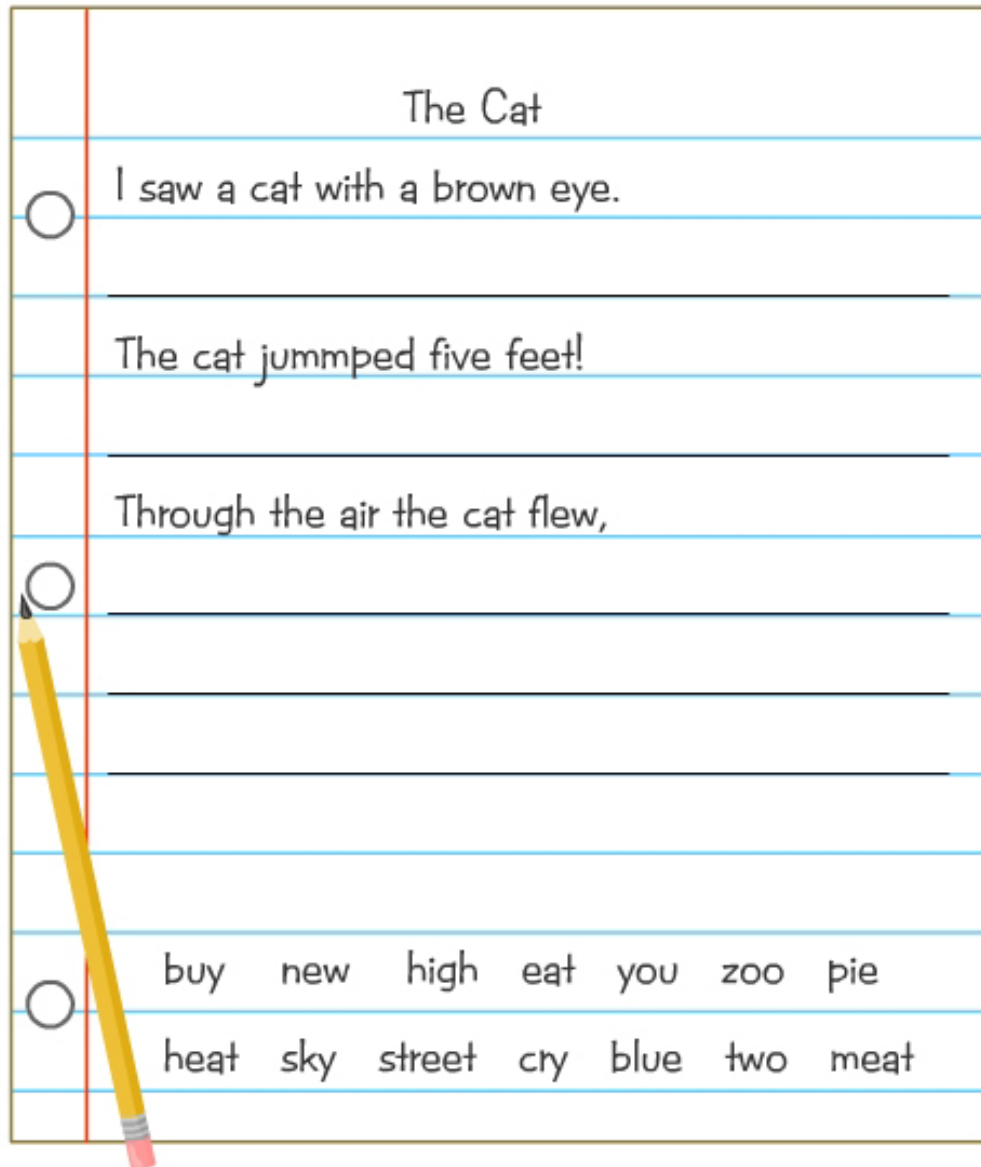 The Cat
I saw a cat with a brown eye.
The cat jummped five feet!
Through the air the cat flew,
buy new high eat you zoo pie
heat sky street cry blue two meat